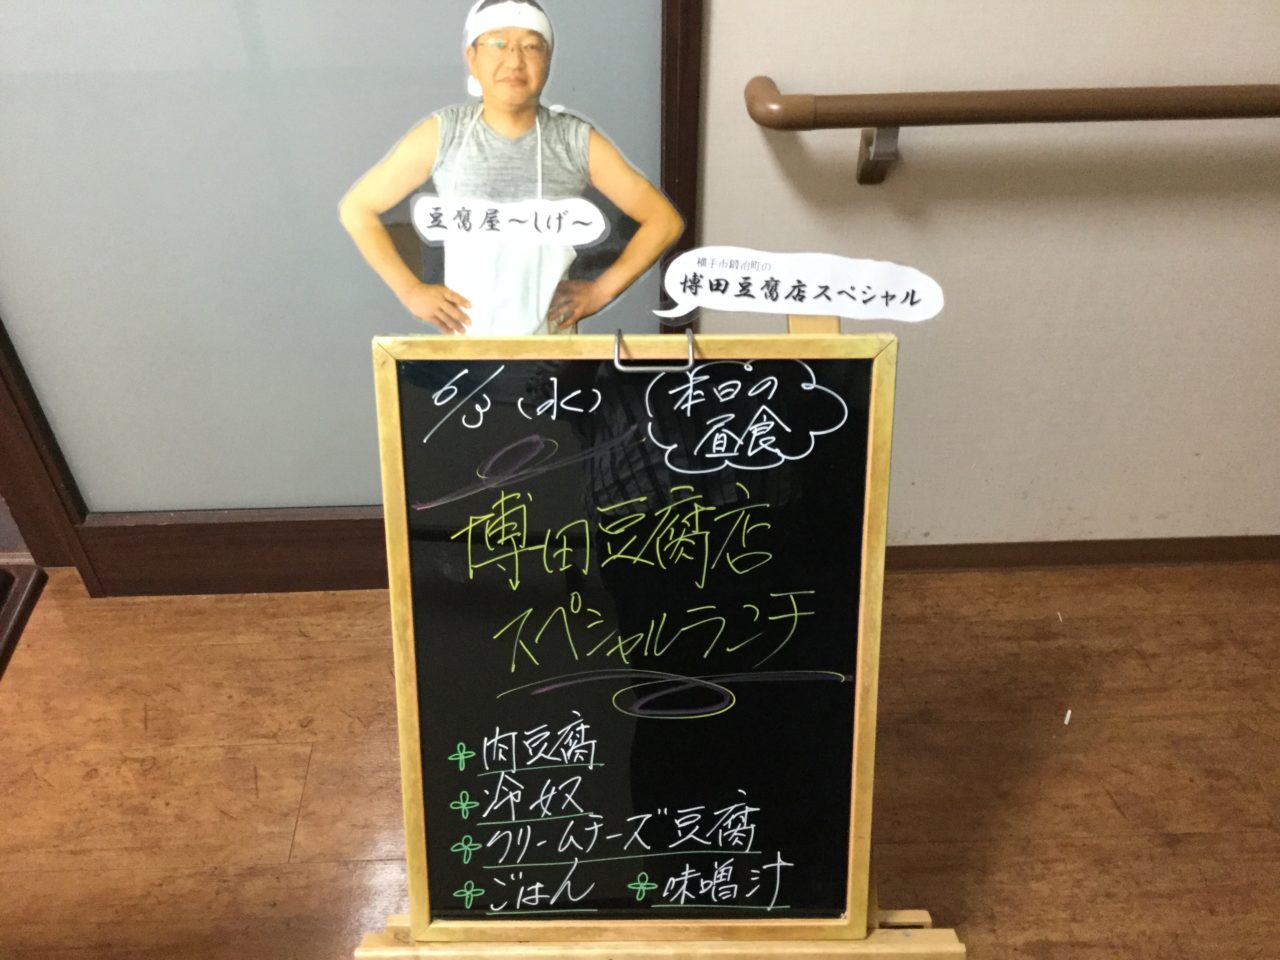 豆腐屋～しげ～
横手市鍛冶町の
博田豆腐店スペシャル
6/3(水)
本日の
昼食
博田豆腐店
スペシャルランチ
肉豆腐
冷奴
クリームチーズ豆腐
ごはん 味噌汁